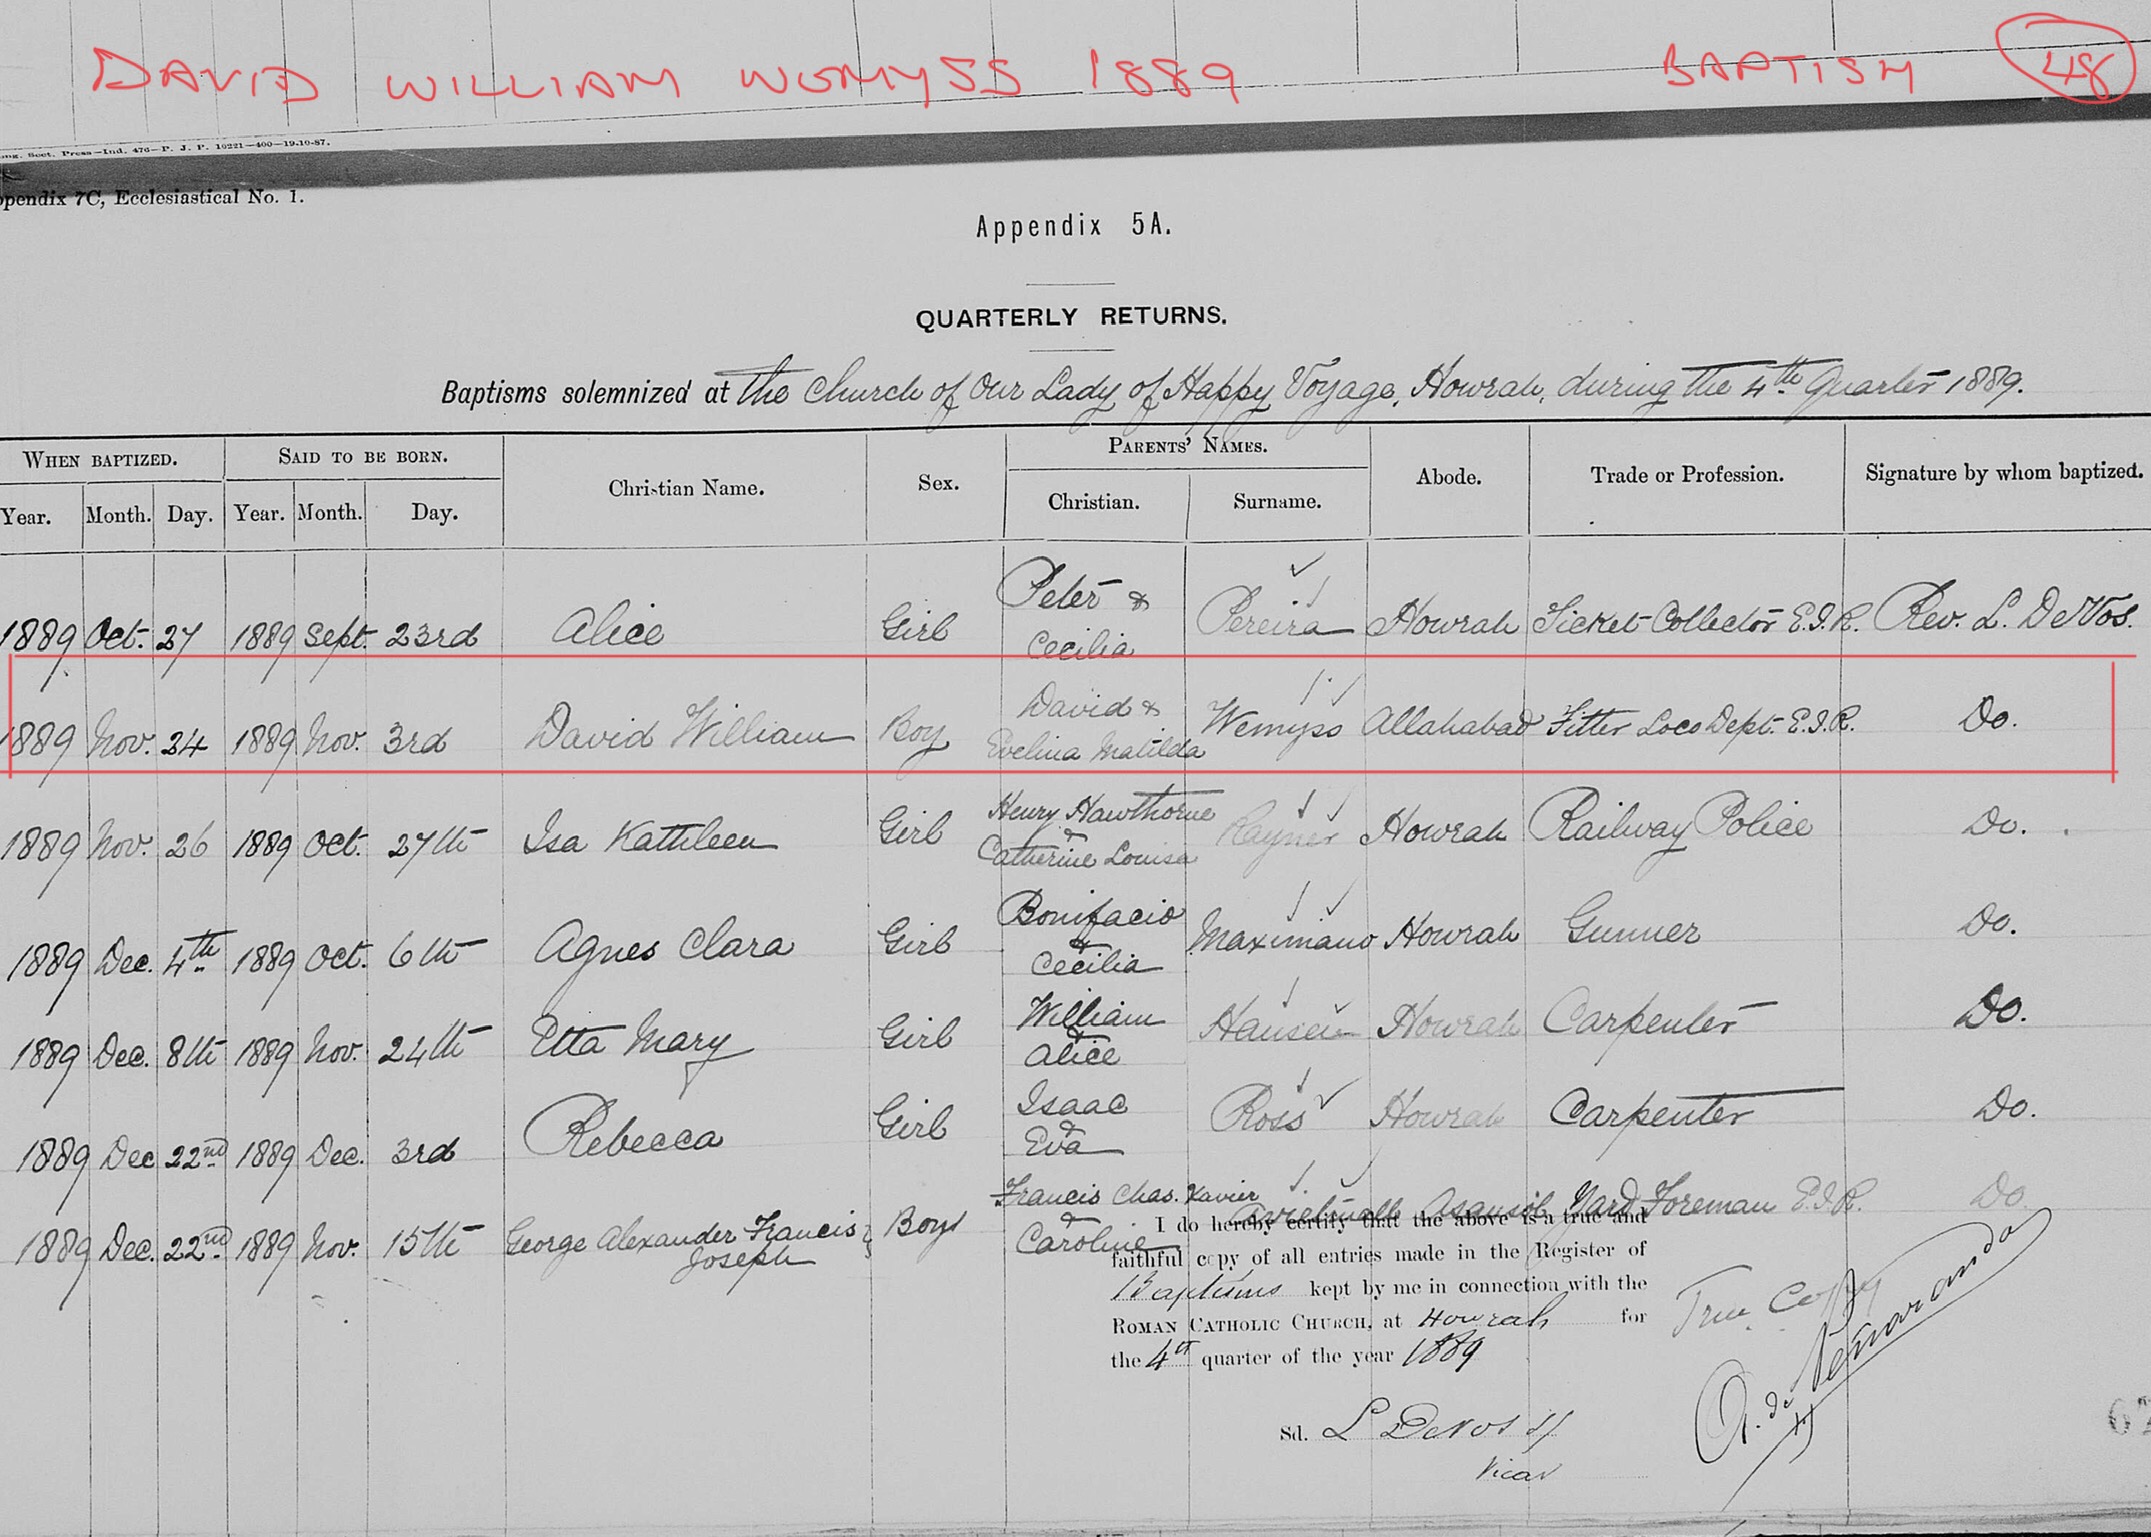 DAVID WILLIAM WEMYSS 1889 BAPTISM 48
Sect. Press—Ind. 476—P. J. P. 10221—400—19-10-87.
ppendix 7C, Ecclesiastical No. 1.
Appendix 5A.
QUARTERLY RETURNS.
Baptisms solemnized at the Church of Our Lady of Happy Voyage, Howrah, during the 4th Quarter 1889.
WHEN BAPTIZED. SAID TO BE BORN. Christian Name. Sex. PARENTS' NAMES. Abode. Trade or Profession. Signature by whom baptized.
Year. Month. Day. Year. Month. Day. Christian. Surname.
1889 Oct. 27 1889 Sept. 23rd Alice Girl Peter & Cecilia Pereira Howrah Ticket Collector E.I.R. Rev. L. DeVos.
1889 Nov. 24 1889 Nov. 3rd David William Boy David & Evelina Matilda Wemyss Allahabad Fitter Loco Dept. E.I.R. Do.
1889 Nov. 26 1889 Oct. 27th Isa Kathleen Girl Henry Hawthorne & Catherine Louisa Rayner Howrah Railway Police Do.
1889 Dec. 4th 1889 Oct. 6th Agnes Clara Girl Bonifacio & Cecilia Maximano Howrah Gunner Do.
1889 Dec. 8th 1889 Nov. 24th Etta Mary Girl William & Alice Hansen Howrah Carpenter Do.
1889 Dec 22nd 1889 Dec. 3rd Rebecca Girl Isaac & Eva Ross Howrah Carpenter Do.
1889 Dec. 22nd 1889 Nov. 15th George Alexander Francis Joseph Boy Francis Chas. Xavier & Caroline Asansol Yard Foreman E.I.R. Do.
I do hereby certify that the above is a true and
faithful copy of all entries made in the Register of
Baptisms kept by me in connection with the
ROMAN CATHOLIC CHURCH, at Howrah for
the 4th quarter of the year 1889
True Copy
Sd. L DeVos SJ
Vicar